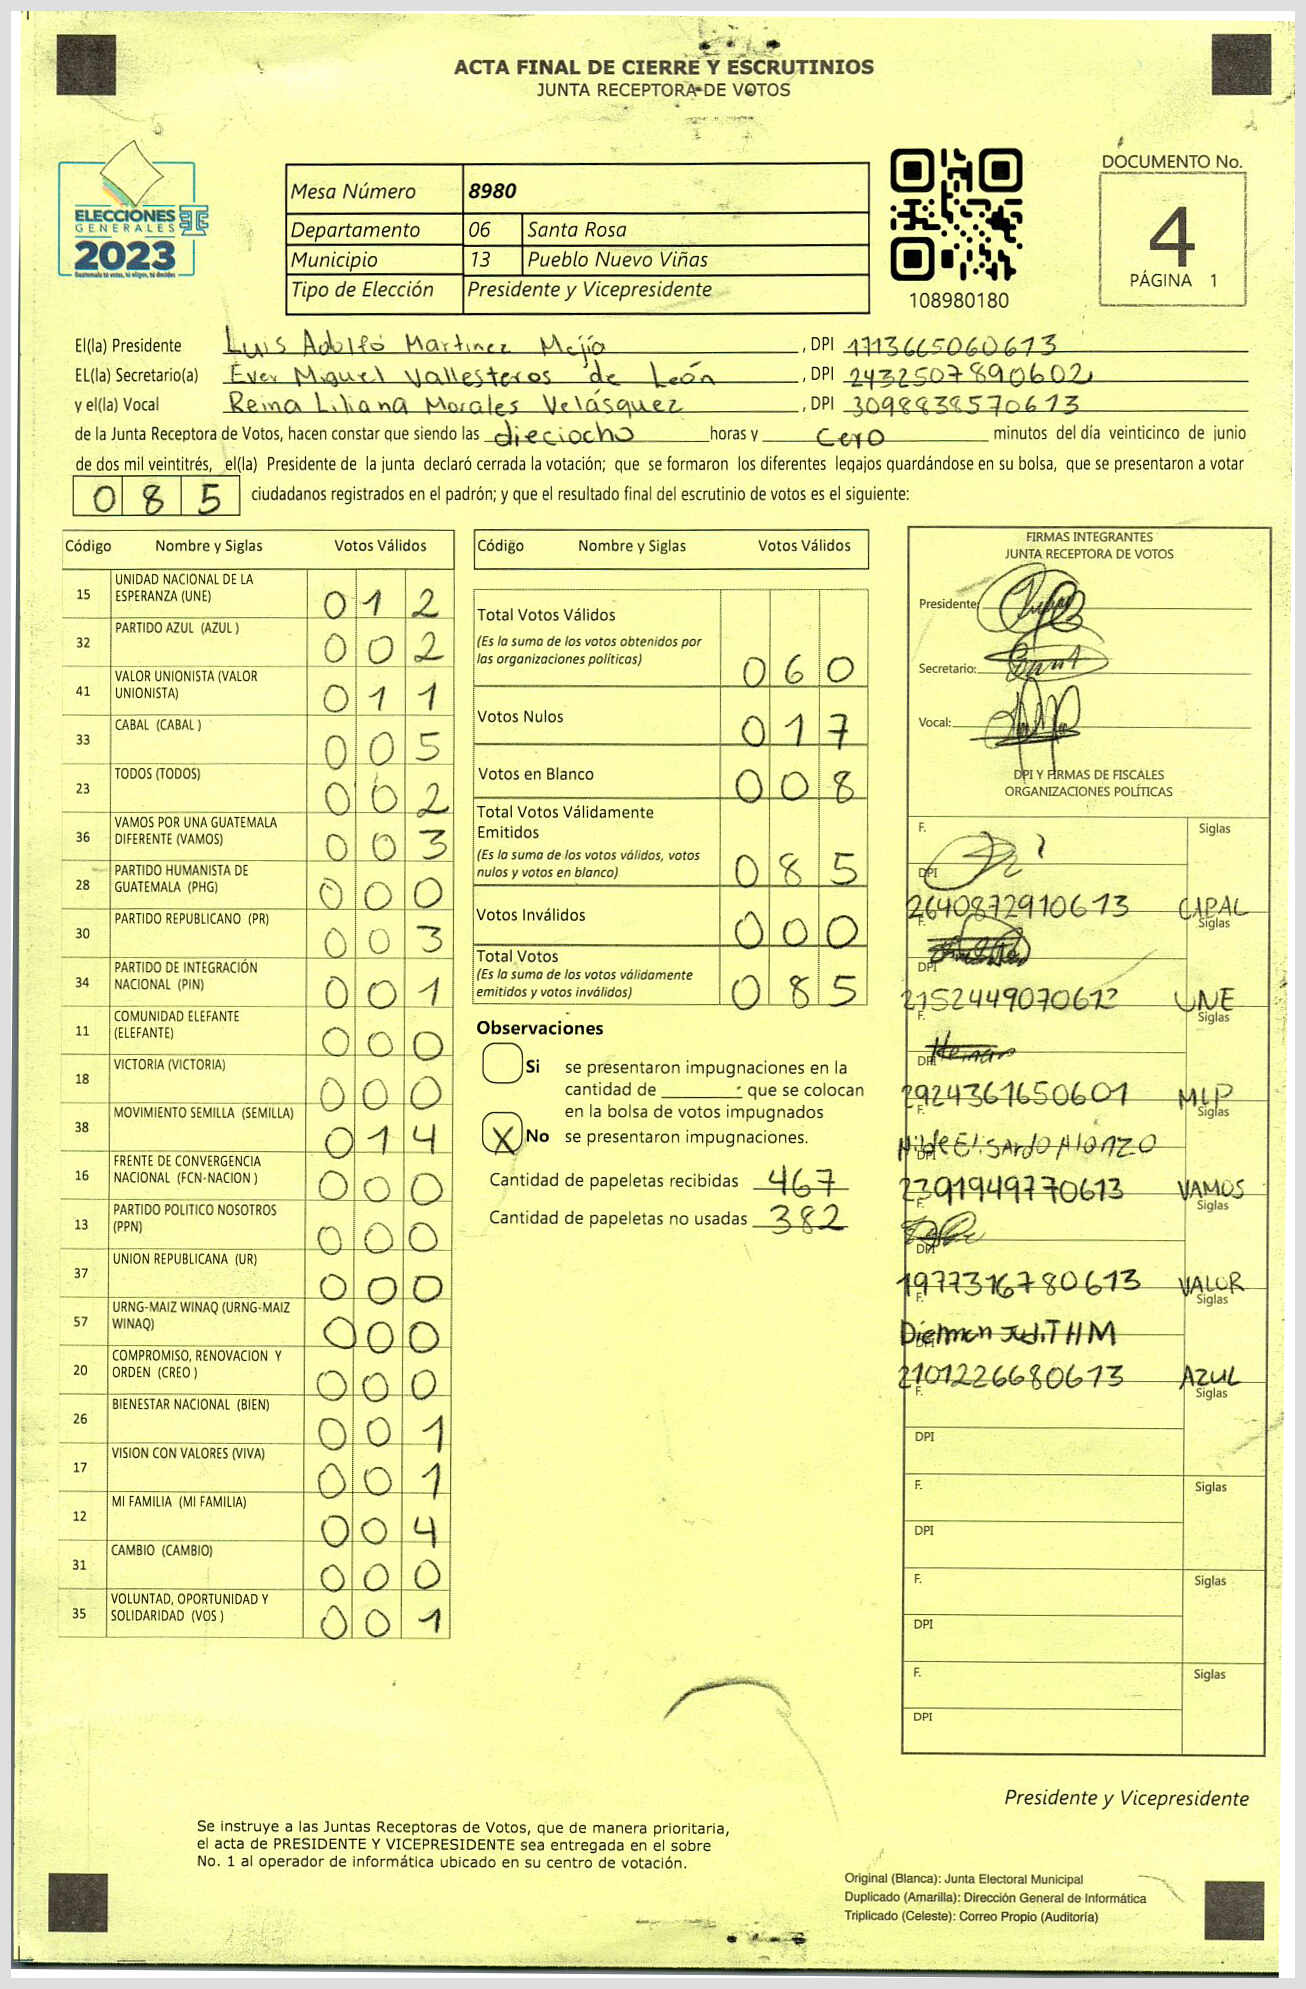 ACTA FINAL DE CIERRE Y ESCRUTINIOS
JUNTA RECEPTORA DE VOTOS
ELECCIONES
GENERALES
2023
Guatemala tú votas, tú eliges, tú decides
Mesa Número 8980
Departamento 06 Santa Rosa
Municipio 13 Pueblo Nuevo Viñas
Tipo de Elección Presidente y Vicepresidente
108980180
DOCUMENTO No.
4
PÁGINA 1
El(la) Presidente Luis Adolfo Martinez Mejía , DPI 1713665060613
EL(la) Secretario(a) Ever Miguel Vallesteros de León , DPI 2432507890602
y el(la) Vocal Reina Liliana Morales Velásquez , DPI 3098838570613
de la Junta Receptora de Votos, hacen constar que siendo las dieciocho horas y cero minutos del día veinticinco de junio
de dos mil veintitrés, el(la) Presidente de la junta declaró cerrada la votación; que se formaron los diferentes legajos guardándose en su bolsa, que se presentaron a votar
085 ciudadanos registrados en el padrón; y que el resultado final del escrutinio de votos es el siguiente:
Código Nombre y Siglas Votos Válidos
15 UNIDAD NACIONAL DE LA ESPERANZA (UNE) 012
32 PARTIDO AZUL (AZUL ) 002
41 VALOR UNIONISTA (VALOR UNIONISTA) 011
33 CABAL (CABAL ) 005
23 TODOS (TODOS) 002
36 VAMOS POR UNA GUATEMALA DIFERENTE (VAMOS) 003
28 PARTIDO HUMANISTA DE GUATEMALA (PHG) 000
30 PARTIDO REPUBLICANO (PR) 003
34 PARTIDO DE INTEGRACIÓN NACIONAL (PIN) 001
11 COMUNIDAD ELEFANTE (ELEFANTE) 000
18 VICTORIA (VICTORIA) 000
38 MOVIMIENTO SEMILLA (SEMILLA) 014
16 FRENTE DE CONVERGENCIA NACIONAL (FCN-NACION ) 000
13 PARTIDO POLITICO NOSOTROS (PPN) 000
37 UNION REPUBLICANA (UR) 000
57 URNG-MAIZ WINAQ (URNG-MAIZ WINAQ) 000
20 COMPROMISO, RENOVACION Y ORDEN (CREO ) 000
26 BIENESTAR NACIONAL (BIEN) 001
17 VISION CON VALORES (VIVA) 001
12 MI FAMILIA (MI FAMILIA) 004
31 CAMBIO (CAMBIO) 000
35 VOLUNTAD, OPORTUNIDAD Y SOLIDARIDAD (VOS ) 001
Código Nombre y Siglas Votos Válidos
Total Votos Válidos
(Es la suma de los votos obtenidos por
las organizaciones políticas) 060
Votos Nulos 017
Votos en Blanco 008
Total Votos Válidamente
Emitidos
(Es la suma de los votos válidos, votos
nulos y votos en blanco) 085
Votos Inválidos 000
Total Votos
(Es la suma de los votos válidamente
emitidos y votos inválidos) 085
Observaciones
Si se presentaron impugnaciones en la
cantidad de ________ que se colocan
en la bolsa de votos impugnados
X No se presentaron impugnaciones.
Cantidad de papeletas recibidas 467
Cantidad de papeletas no usadas 382
FIRMAS INTEGRANTES
JUNTA RECEPTORA DE VOTOS
Presidente:
Secretario:
Vocal:
DPI Y FIRMAS DE FISCALES
ORGANIZACIONES POLÍTICAS
F. Siglas
DPI
2640872910613 CABAL
F. Siglas
DPI
2152449070612 UNE
F. Siglas
DPI
2924361650601 MLP
F. Siglas
DPI
2391949770613 VAMOS
F. Siglas
DPI
1977316780613 VALOR
F. Siglas
DPI
2101226680613 AZUL
F. Siglas
DPI
F. Siglas
DPI
F. Siglas
DPI
F. Siglas
DPI
Presidente y Vicepresidente
Se instruye a las Juntas Receptoras de Votos, que de manera prioritaria,
el acta de PRESIDENTE Y VICEPRESIDENTE sea entregada en el sobre
No. 1 al operador de informática ubicado en su centro de votación.
Original (Blanca): Junta Electoral Municipal
Duplicado (Amarilla): Dirección General de Informática
Triplicado (Celeste): Correo Propio (Auditoría)